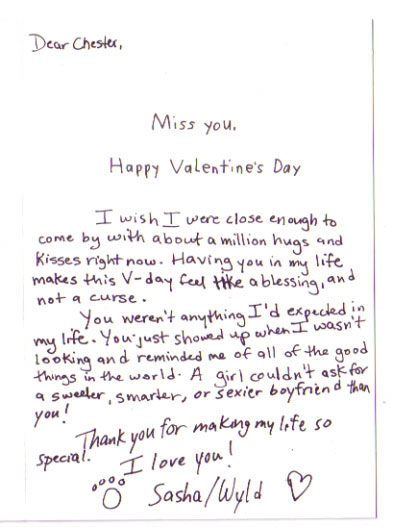 Dear Chester,
Miss you.
Happy Valentine's Day
I wish I were close enough to
come by with about a million hugs and
Kisses right now. Having you in my life
makes this V-day feel like a blessing, and
not a curse.
You weren't anything I'd expected in
my life. You just showed up when I wasn't
looking and reminded me of all of the good
things in the world. A girl couldn't ask for
a sweeter, smarter, or sexier boyfriend than
you!
Thank you for making my life so
special.
I love you!
Sasha/Wyld